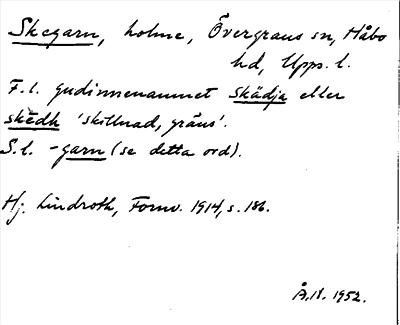 Skegarn, holme, Övergrans sn, Håbo
hd, Upps. l.
F.l. gudinnenamnet Skädja eller
skědh 'skillnad, gräns'.
S.l. -garn (se detta ord).
Hj. Lindroth, Fornv. 1914, s. 186.
1952.